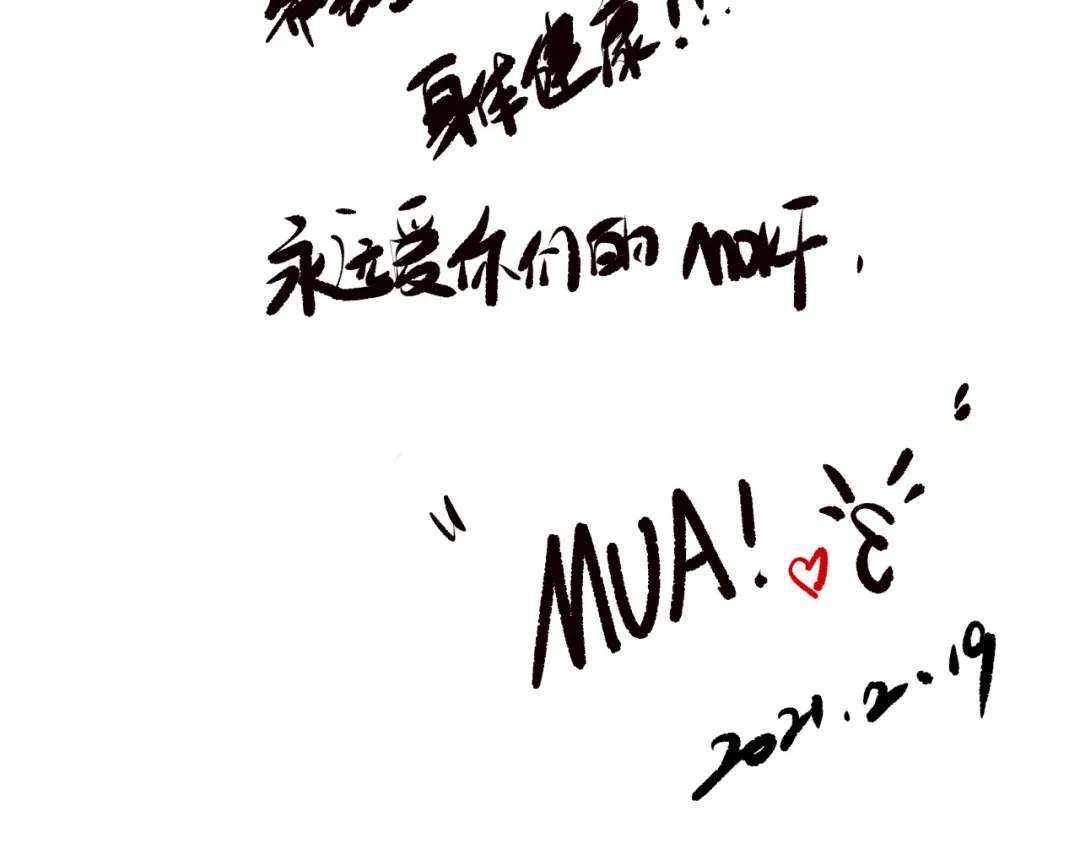 身体健康!!!
永远爱你们的 MDKF.
"MUA!
2021.2.19